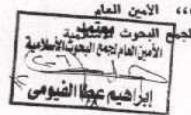 ،، الأمين العام
لمجمع البحوث الإسلامية
يعتمد
الأمين العام لمجمع البحوث الإسلامية
إبراهيم عطا الفيومى